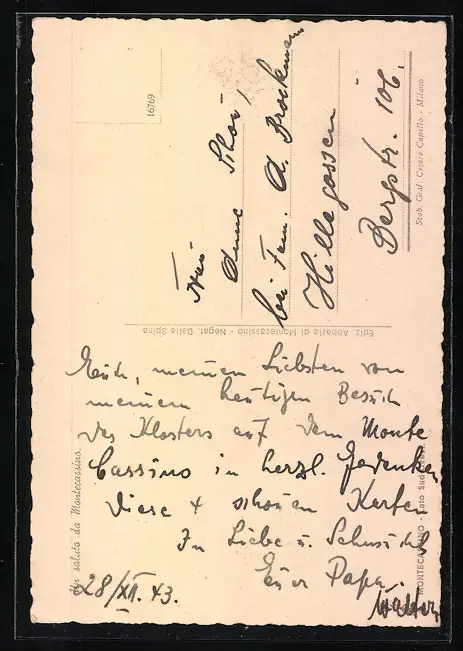 16769
Frau
Anne Thon,
bei Fam. A. Brockmann
Hillegossen
Bergstr. 106.
Stab. Graf. Cesare Capello - Milano
Ediz. Abbazia di Montecassino - Negat. Dalle Spina
Euch, meinen Liebsten von
meinem heutigen Besuch
des Klosters auf dem Monte
Cassino in herzl. Gedenken
diese 4 schönen Karten
In Liebe u. Sehnsucht
Euer Papa.
Walter
28/XII. 43.
saluto da Montecassino.
MONTECASSINO - Lato Sud